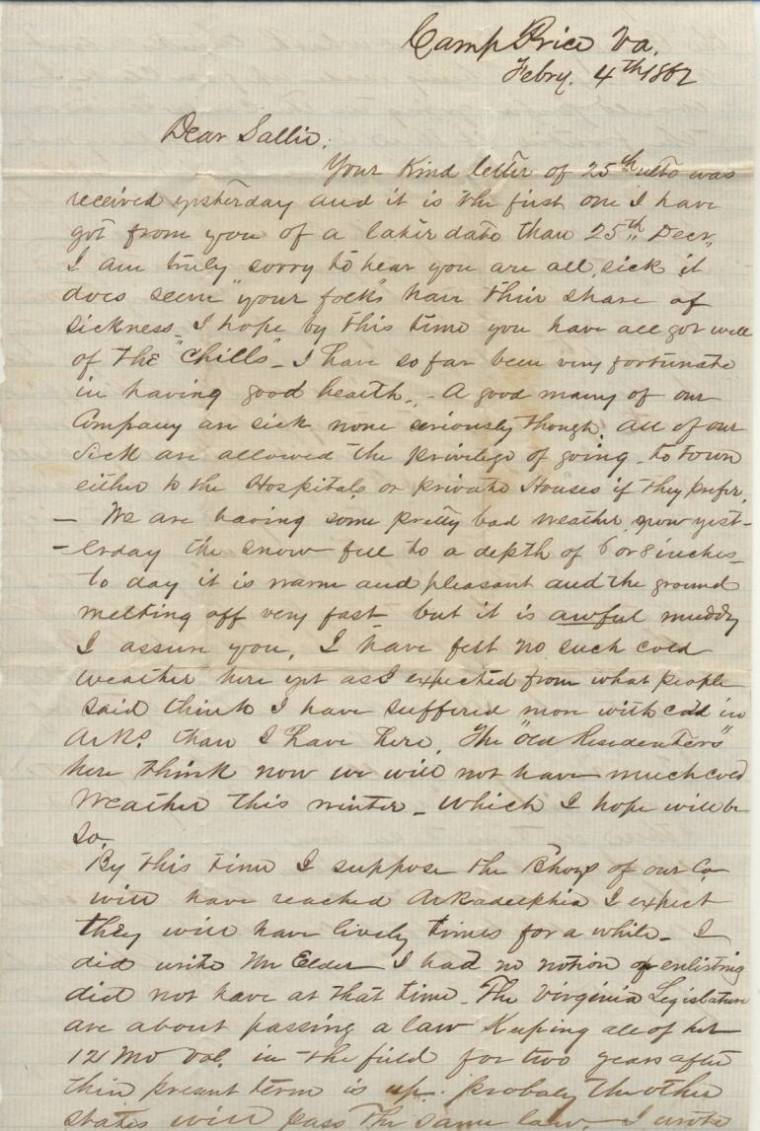 Camp Price Va.
Febry. 4th 1862
Dear Sallie.
Your kind letter of 25th ulto was
received yesterday and it is the first one I have
got from you of a later date than 25th Decr,
I am truly sorry to hear you are all sick it
does seem "your folks" have their share of
sickness. I hope by this time you have all got well
of the "chills" - I have so far been very fortunate
in having good health. - A good many of our
Company are sick none seriously though. all of our
sick are allowed the privilege of going to town
either to the Hospitals or private Houses if they prefer.
— We are having some pretty bad weather now yest-
-erday the snow fell to a depth of 6 or 8 inches
to day it is warm and pleasant and the ground
melting off very fast but it is awful muddy
I assure you, I have felt no such cold
weather here yet as I expected from what people
said think I have suffered more with cold in
Arks. than I have here, The "old Residenters"
here think now we will not have much cold
weather this winter - which I hope will be
so.
By this time I suppose the Boys of our Co
will have reached Arkadelphia I expect
they will have lively times for a while - I
did write Mr Elder I had no notion of enlisting
did not have at that time - The Virginia Legislature
are about passing a law keeping all of her
12 Mo Vol. in the field for two years after
their present term is up. probaly the other
states will pass the same law. I wrote